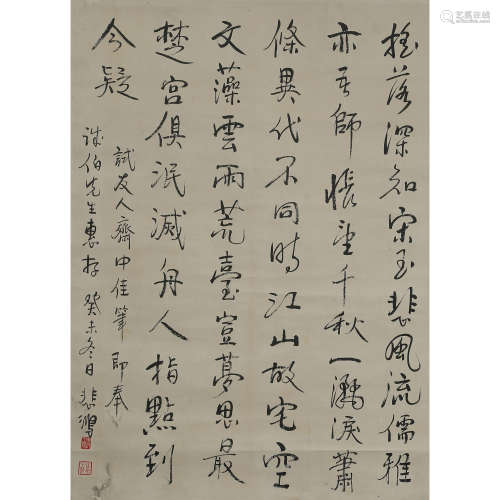 摇落深知宋玉悲风流儒雅
亦吾师怅望千秋一洒泪萧
條異代不同時江山故宅空
文藻雲雨荒臺豈夢思最
楚宫俱泯滅舟人指點到
今疑
試友人齋中佳筆即奉
誅伯先生惠存 癸未冬日 悲鴻